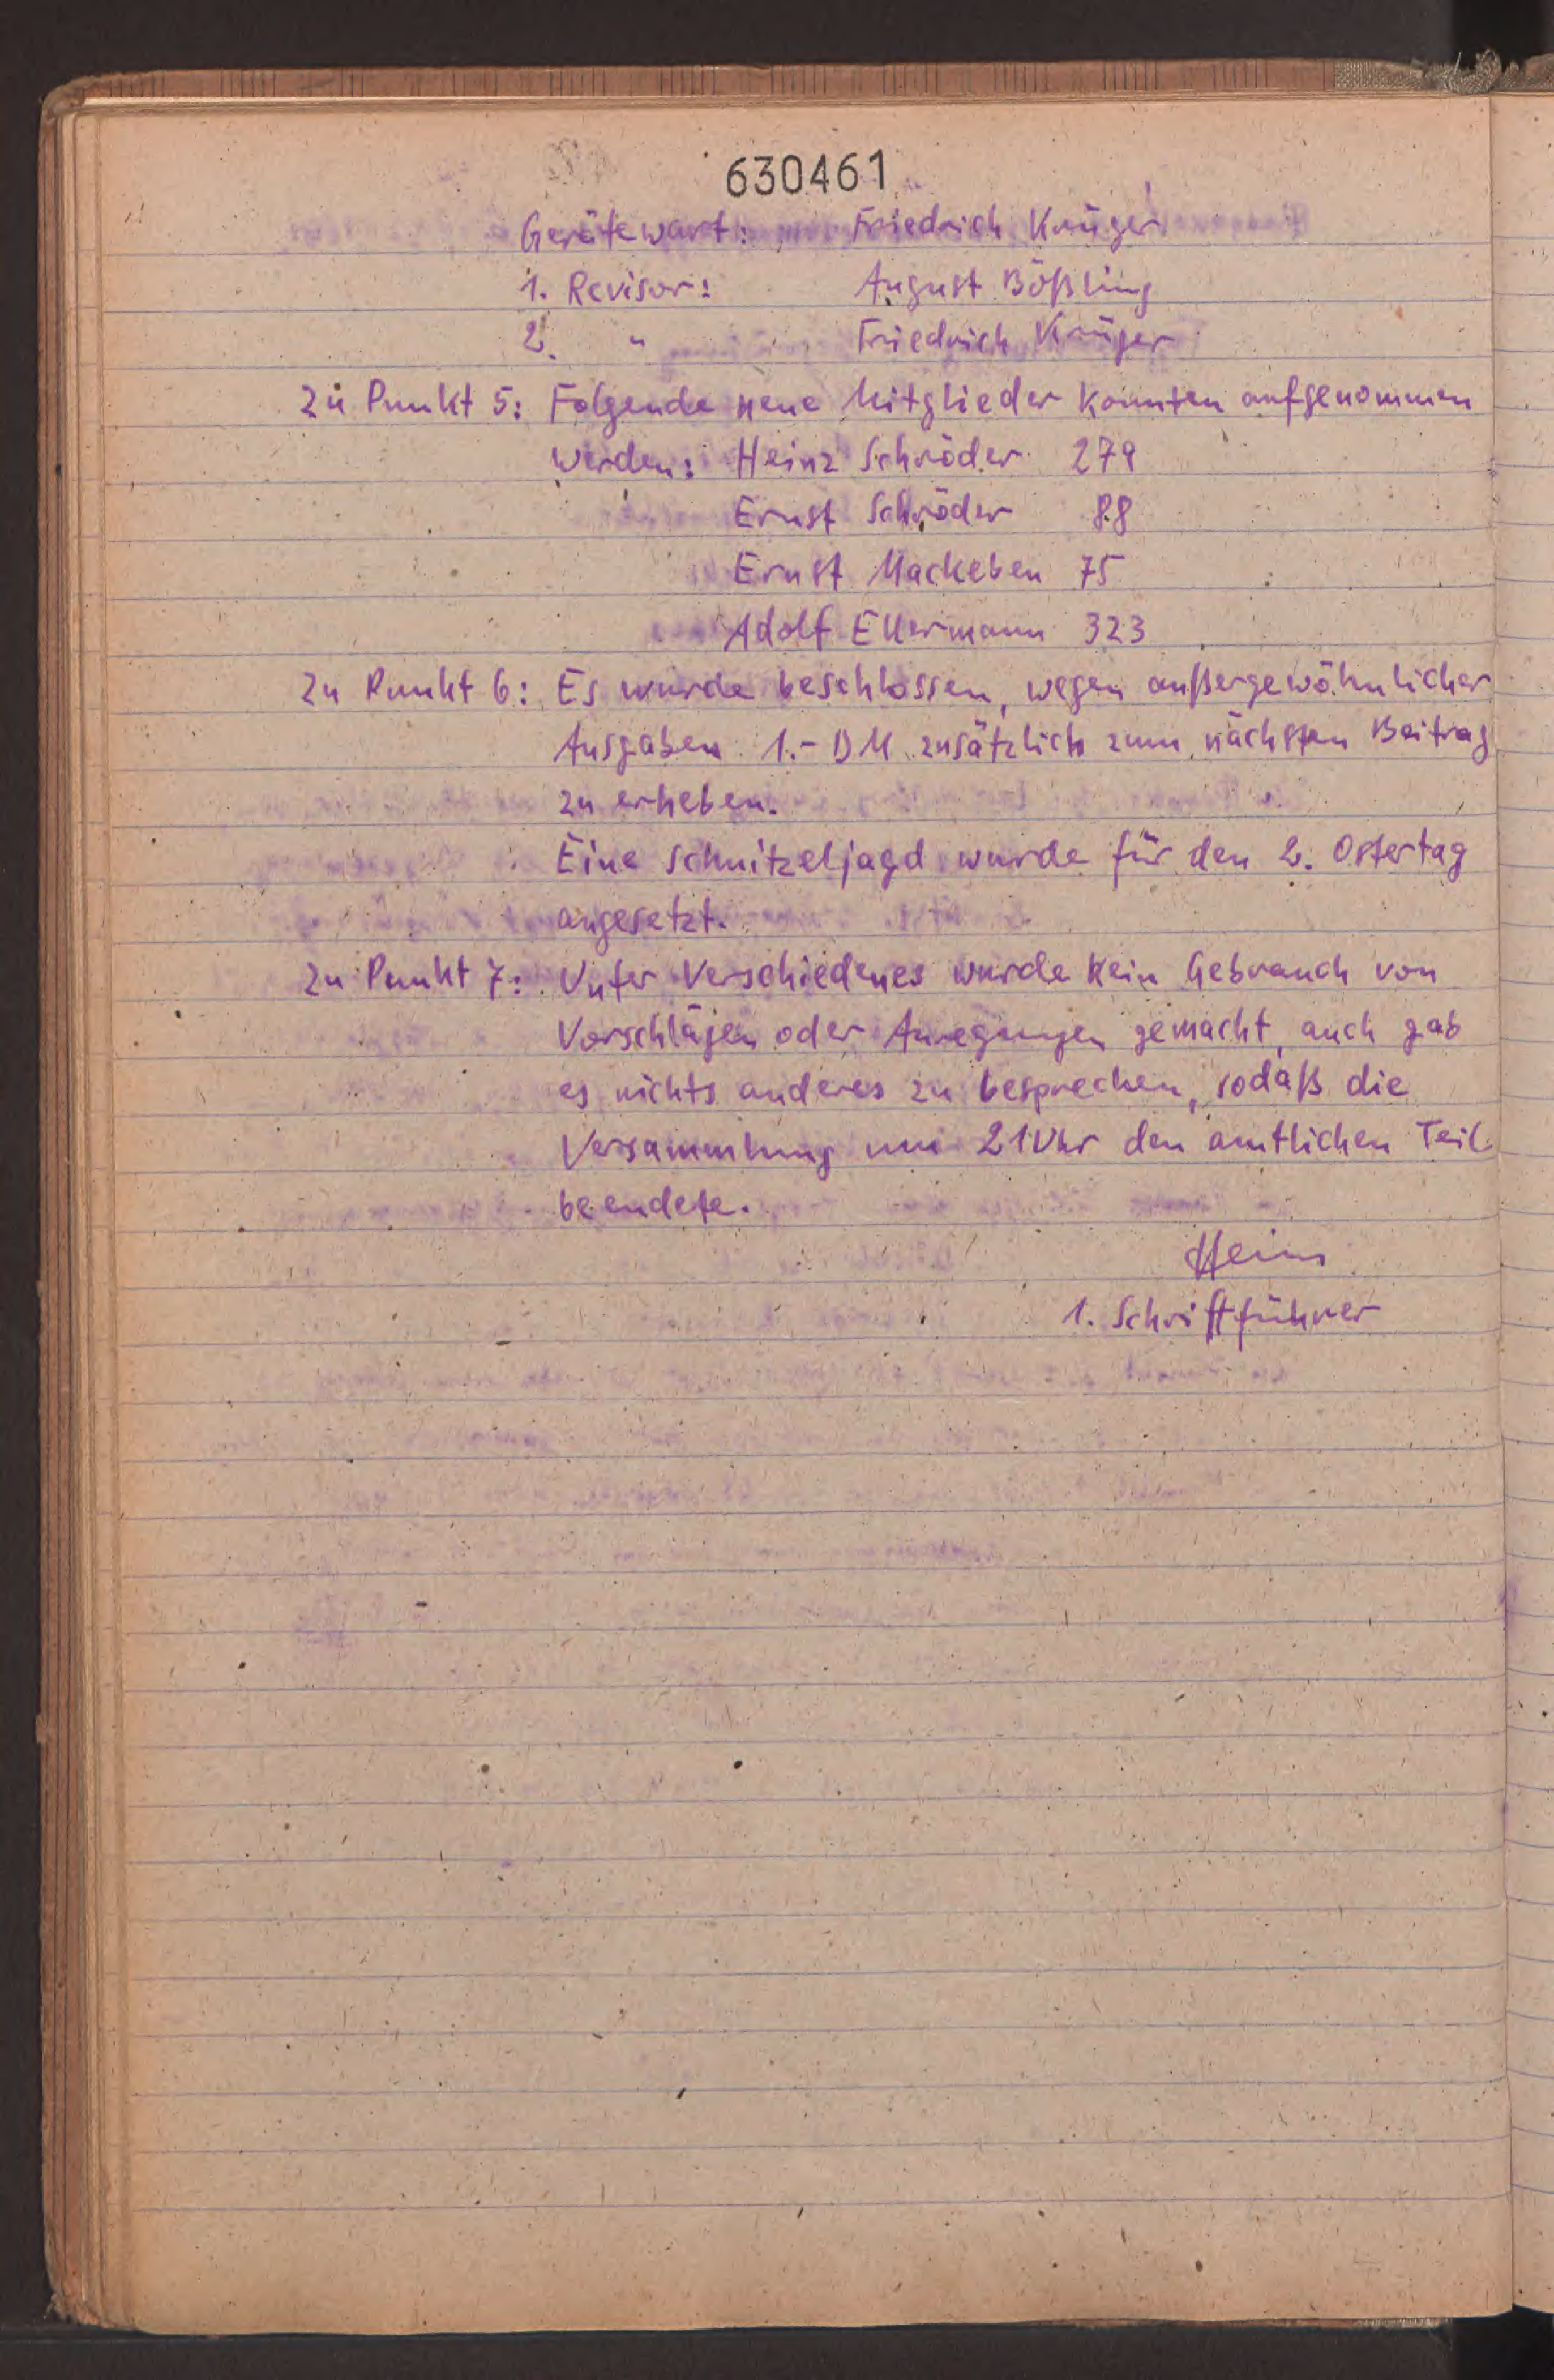 630461
Gerätewart: Friedrich Krüger
1. Revisor: August Bößling
2. " Friedrich Krüger
Zu Punkt 5: Folgende neue Mitglieder konnten aufgenommen
werden: Heinz Schröder 279
Ernst Schröder 88
Ernst Mackeben 75
Adolf Ellermann 323
Zu Punkt 6: Es wurde beschlossen, wegen außergewöhnlicher
Ausgaben 1.- DM zusätzlich zum nächsten Beitrag
zu erheben.
Eine Schnitzeljagd wurde für den 2. Ostertag
angesetzt.
Zu Punkt 7: Unter Verschiedenes wurde kein Gebrauch von
Vorschlägen oder Anregungen gemacht, auch gab
es nichts anderes zu besprechen, sodaß die
Versammlung um 21 Uhr den amtlichen Teil
beendete.
Heins
1. Schriftführer